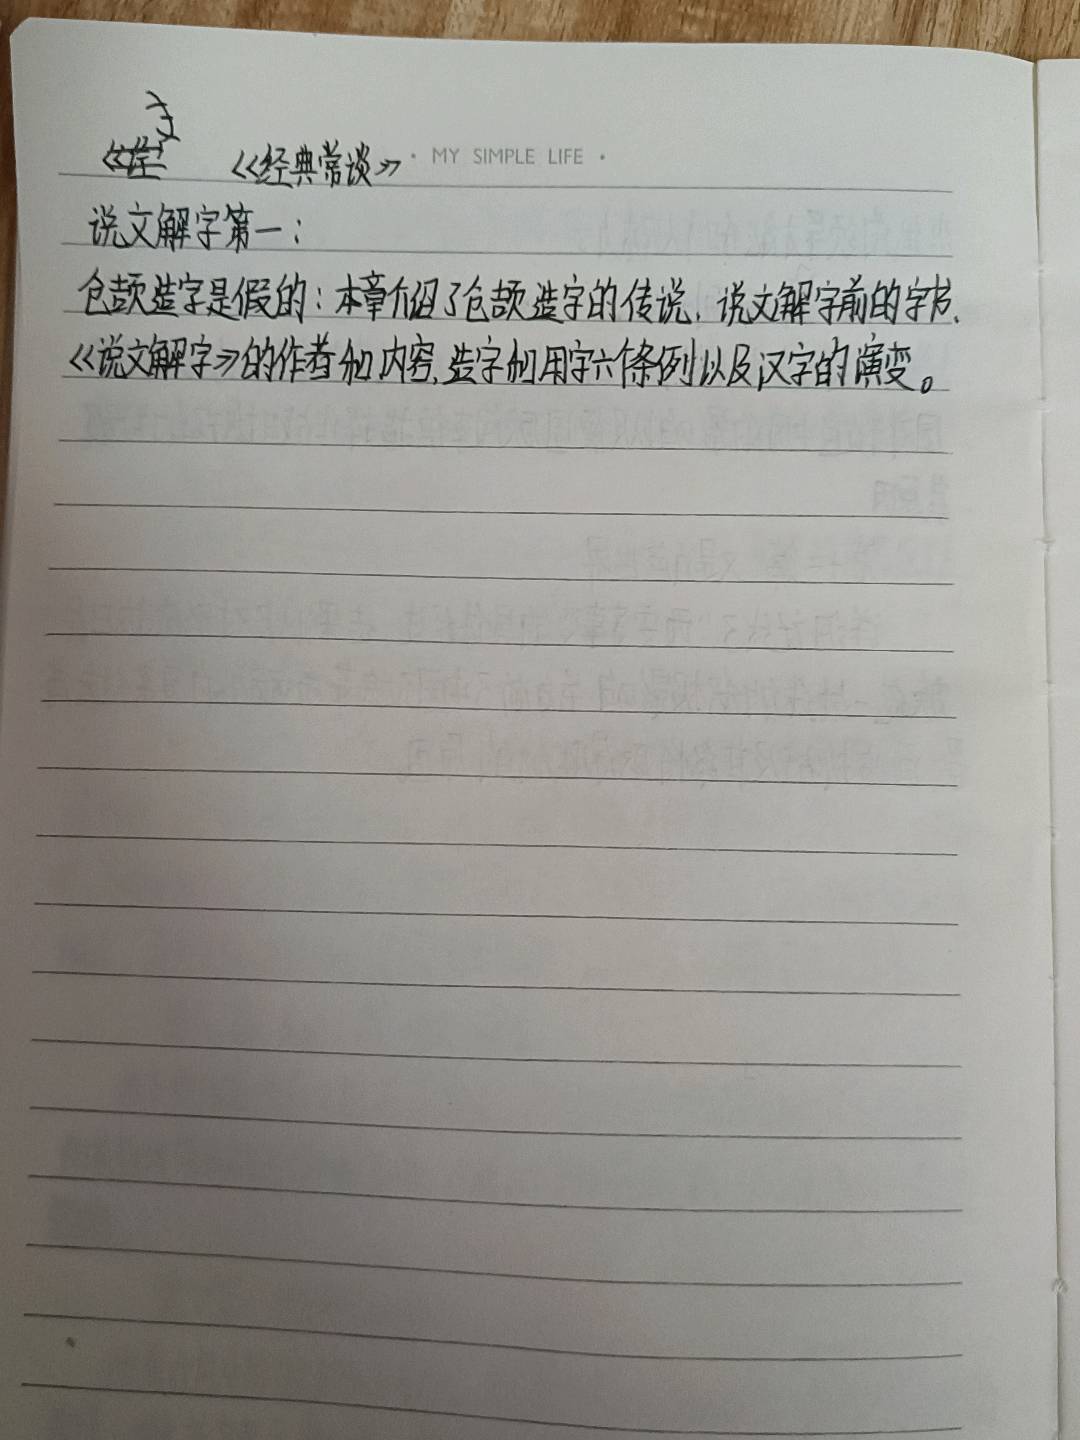 《经典常谈》 · MY SIMPLE LIFE ·
说文解字第一：
仓颉造字是假的：本章介绍了仓颉造字的传说、说文解字前的字书、
《说文解字》的作者和内容、造字和用字六条例以及汉字的演变。